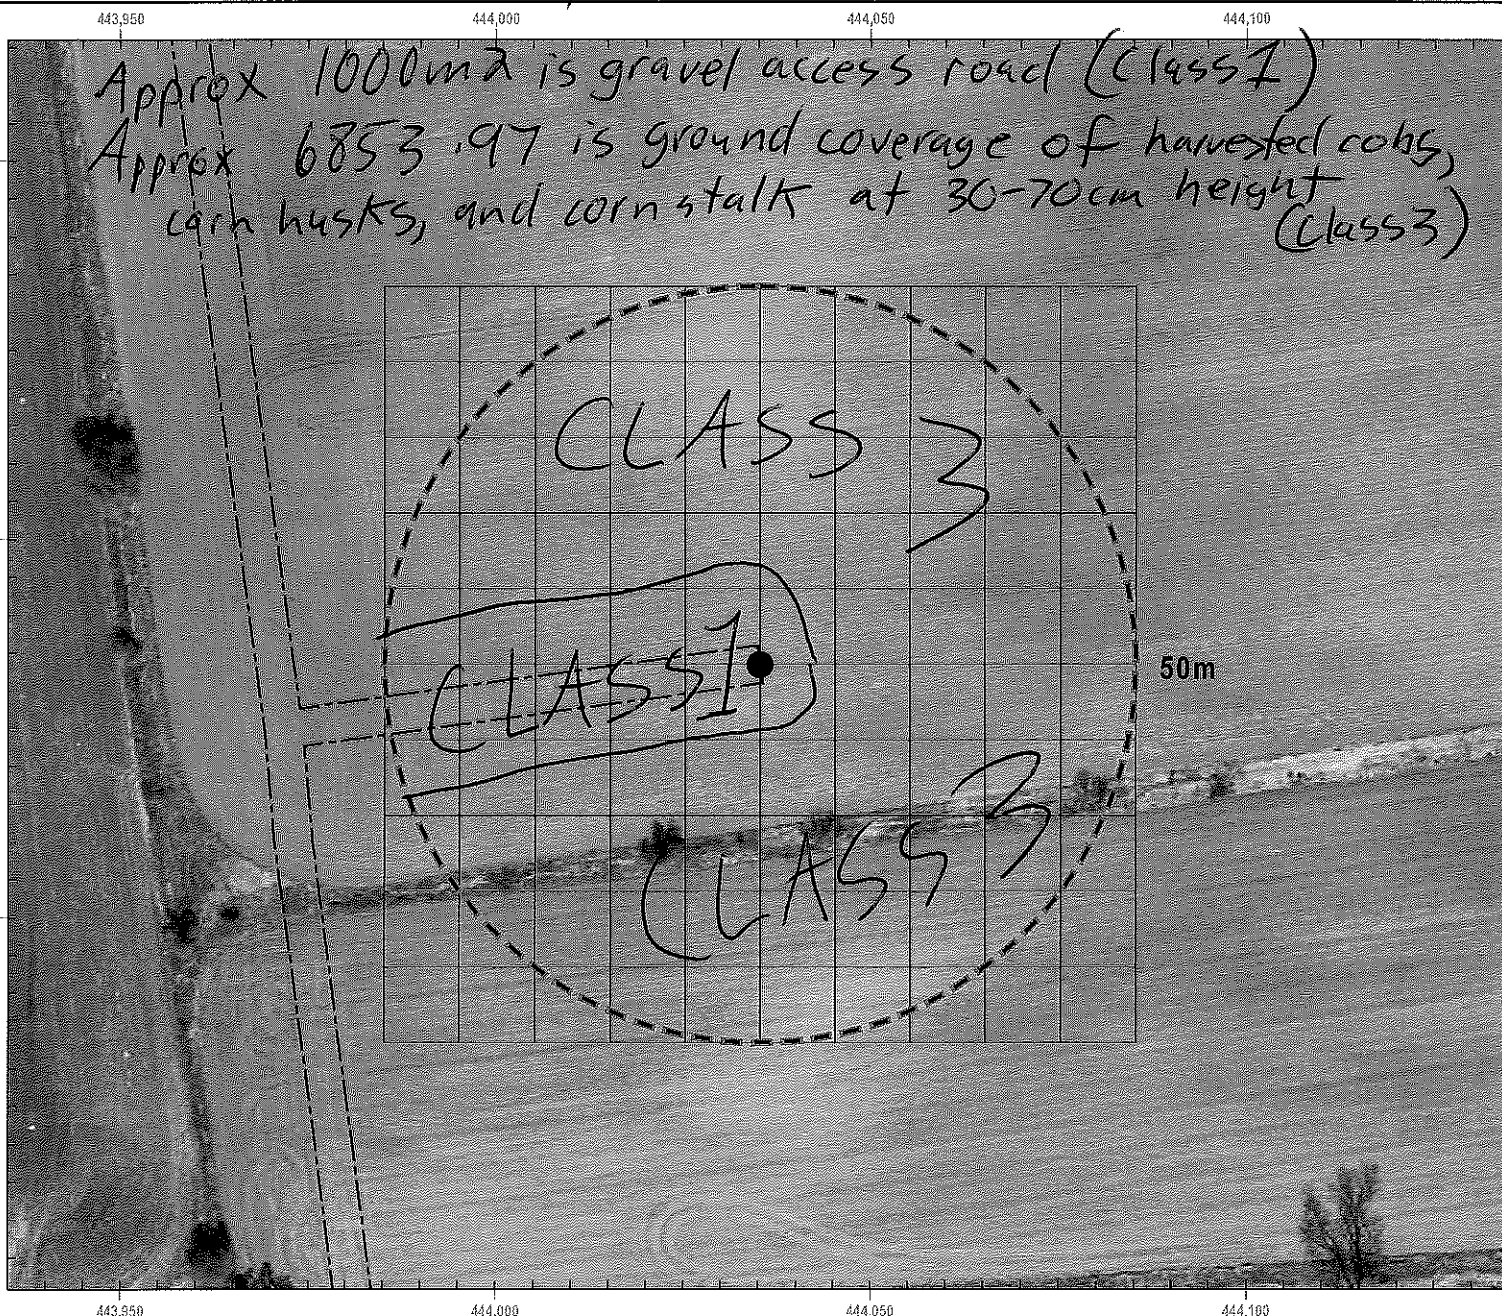 443,950 444,000 444,050 444,100
Approx 1000m2 is gravel access road (Class1)
Approx 6853.97 is ground coverage of harvested cobs,
corn husks, and corn stalk at 30-70cm height
(Class3)
CLASS 3
CLASS1
50m
CLASS 3
443,950 444,000 444,050 444,100